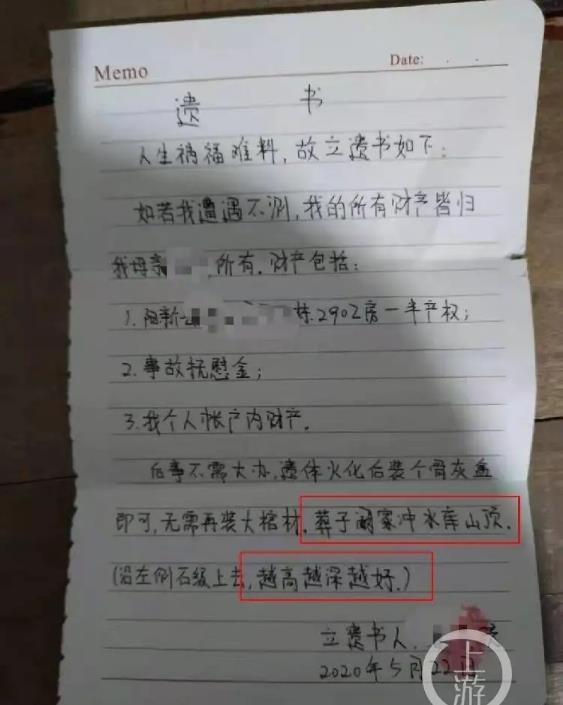 Memo
Date: . .
遗 书
人生祸福难料，故立遗书如下：
如若我遭遇不测，我的所有财产皆归
我母亲 所有，财产包括：
1. 阳新 栋2902房一半产权；
2. 事故抚慰金；
3. 我个人帐户内财产。
后事不需大办，遗体火化后装个骨灰盒
即可，无需再装大棺材，葬于阚家冲水库山顶。
（沿左侧石级上去，越高越深越好。）
立遗书人：
2020年5月22日
上游